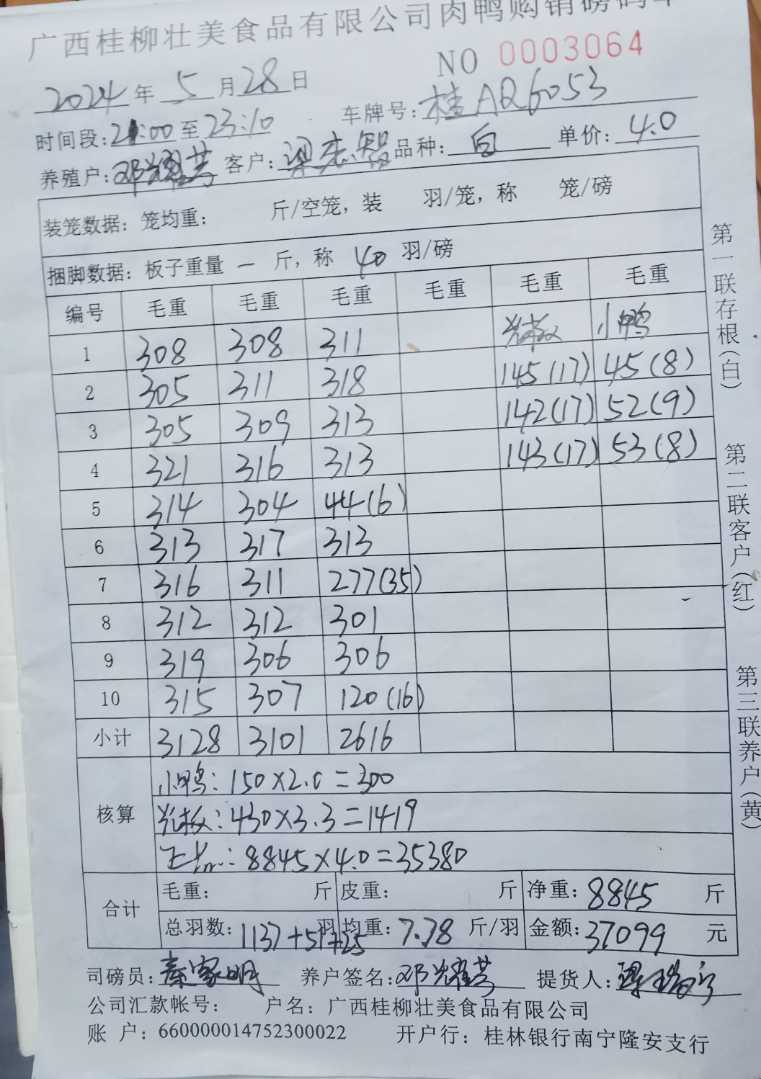 广西桂柳壮美食品有限公司肉鸭购销磅码单
NO 0003064
2024年5月28日
时间段:21:00至23:10 车牌号:桂AQ6053
养殖户:邓耀芬 客户:梁志智 品种:白 单价:4.0
装笼数据:笼均重: 斤/空笼,装 羽/笼,称 笼/磅
捆脚数据:板子重量 一 斤,称 40 羽/磅
编号 毛重 毛重 毛重 毛重 毛重 毛重
1 308 308 311 光板 小鸭
2 305 311 318 145(17) 45(8)
3 305 309 313 142(17) 52(9)
4 321 316 313 143(17) 53(8)
5 314 304 44(6)
6 313 317 313
7 316 311 277(35)
8 312 312 301
9 319 306 306
10 315 307 120(16)
小计 3128 3101 2616
核算
小鸭:150×2.0=300
光板:430×3.3=1419
正品:8845×4.0=35380
合计
毛重: 斤 皮重: 斤 净重:8845 斤
总羽数:1137+51+25 羽 均重:7.78 斤/羽 金额:37099 元
司磅员:秦家明 养户签名:邓耀芬 提货人:
公司汇款帐号: 户名:广西桂柳壮美食品有限公司
账 户:660000014752300022 开户行:桂林银行南宁隆安支行
第一联存根(白)
第二联客户(红)
第三联养户(黄)